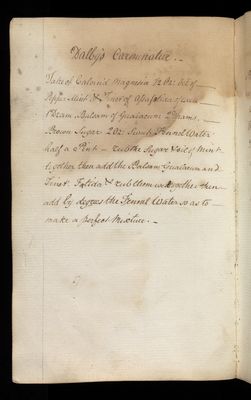 Dalby's Carminative. —
Take of Calcin'd Magnesia ½ Oz: Oil of —
Pepper Mint & Tinct of Assafetida of each
1 Dram Balsam of Guaiacum 2 Drams. —
Brown Sugar 2 Oz: Fennel Water
half a Pint — rub the Sugar & Oil of Mint
together then add the Balsam Guaiacum and
Tinct: Fetida & rub them well together then
add by degrees the Fennel Water so as to —
make a perfect Mixture. —